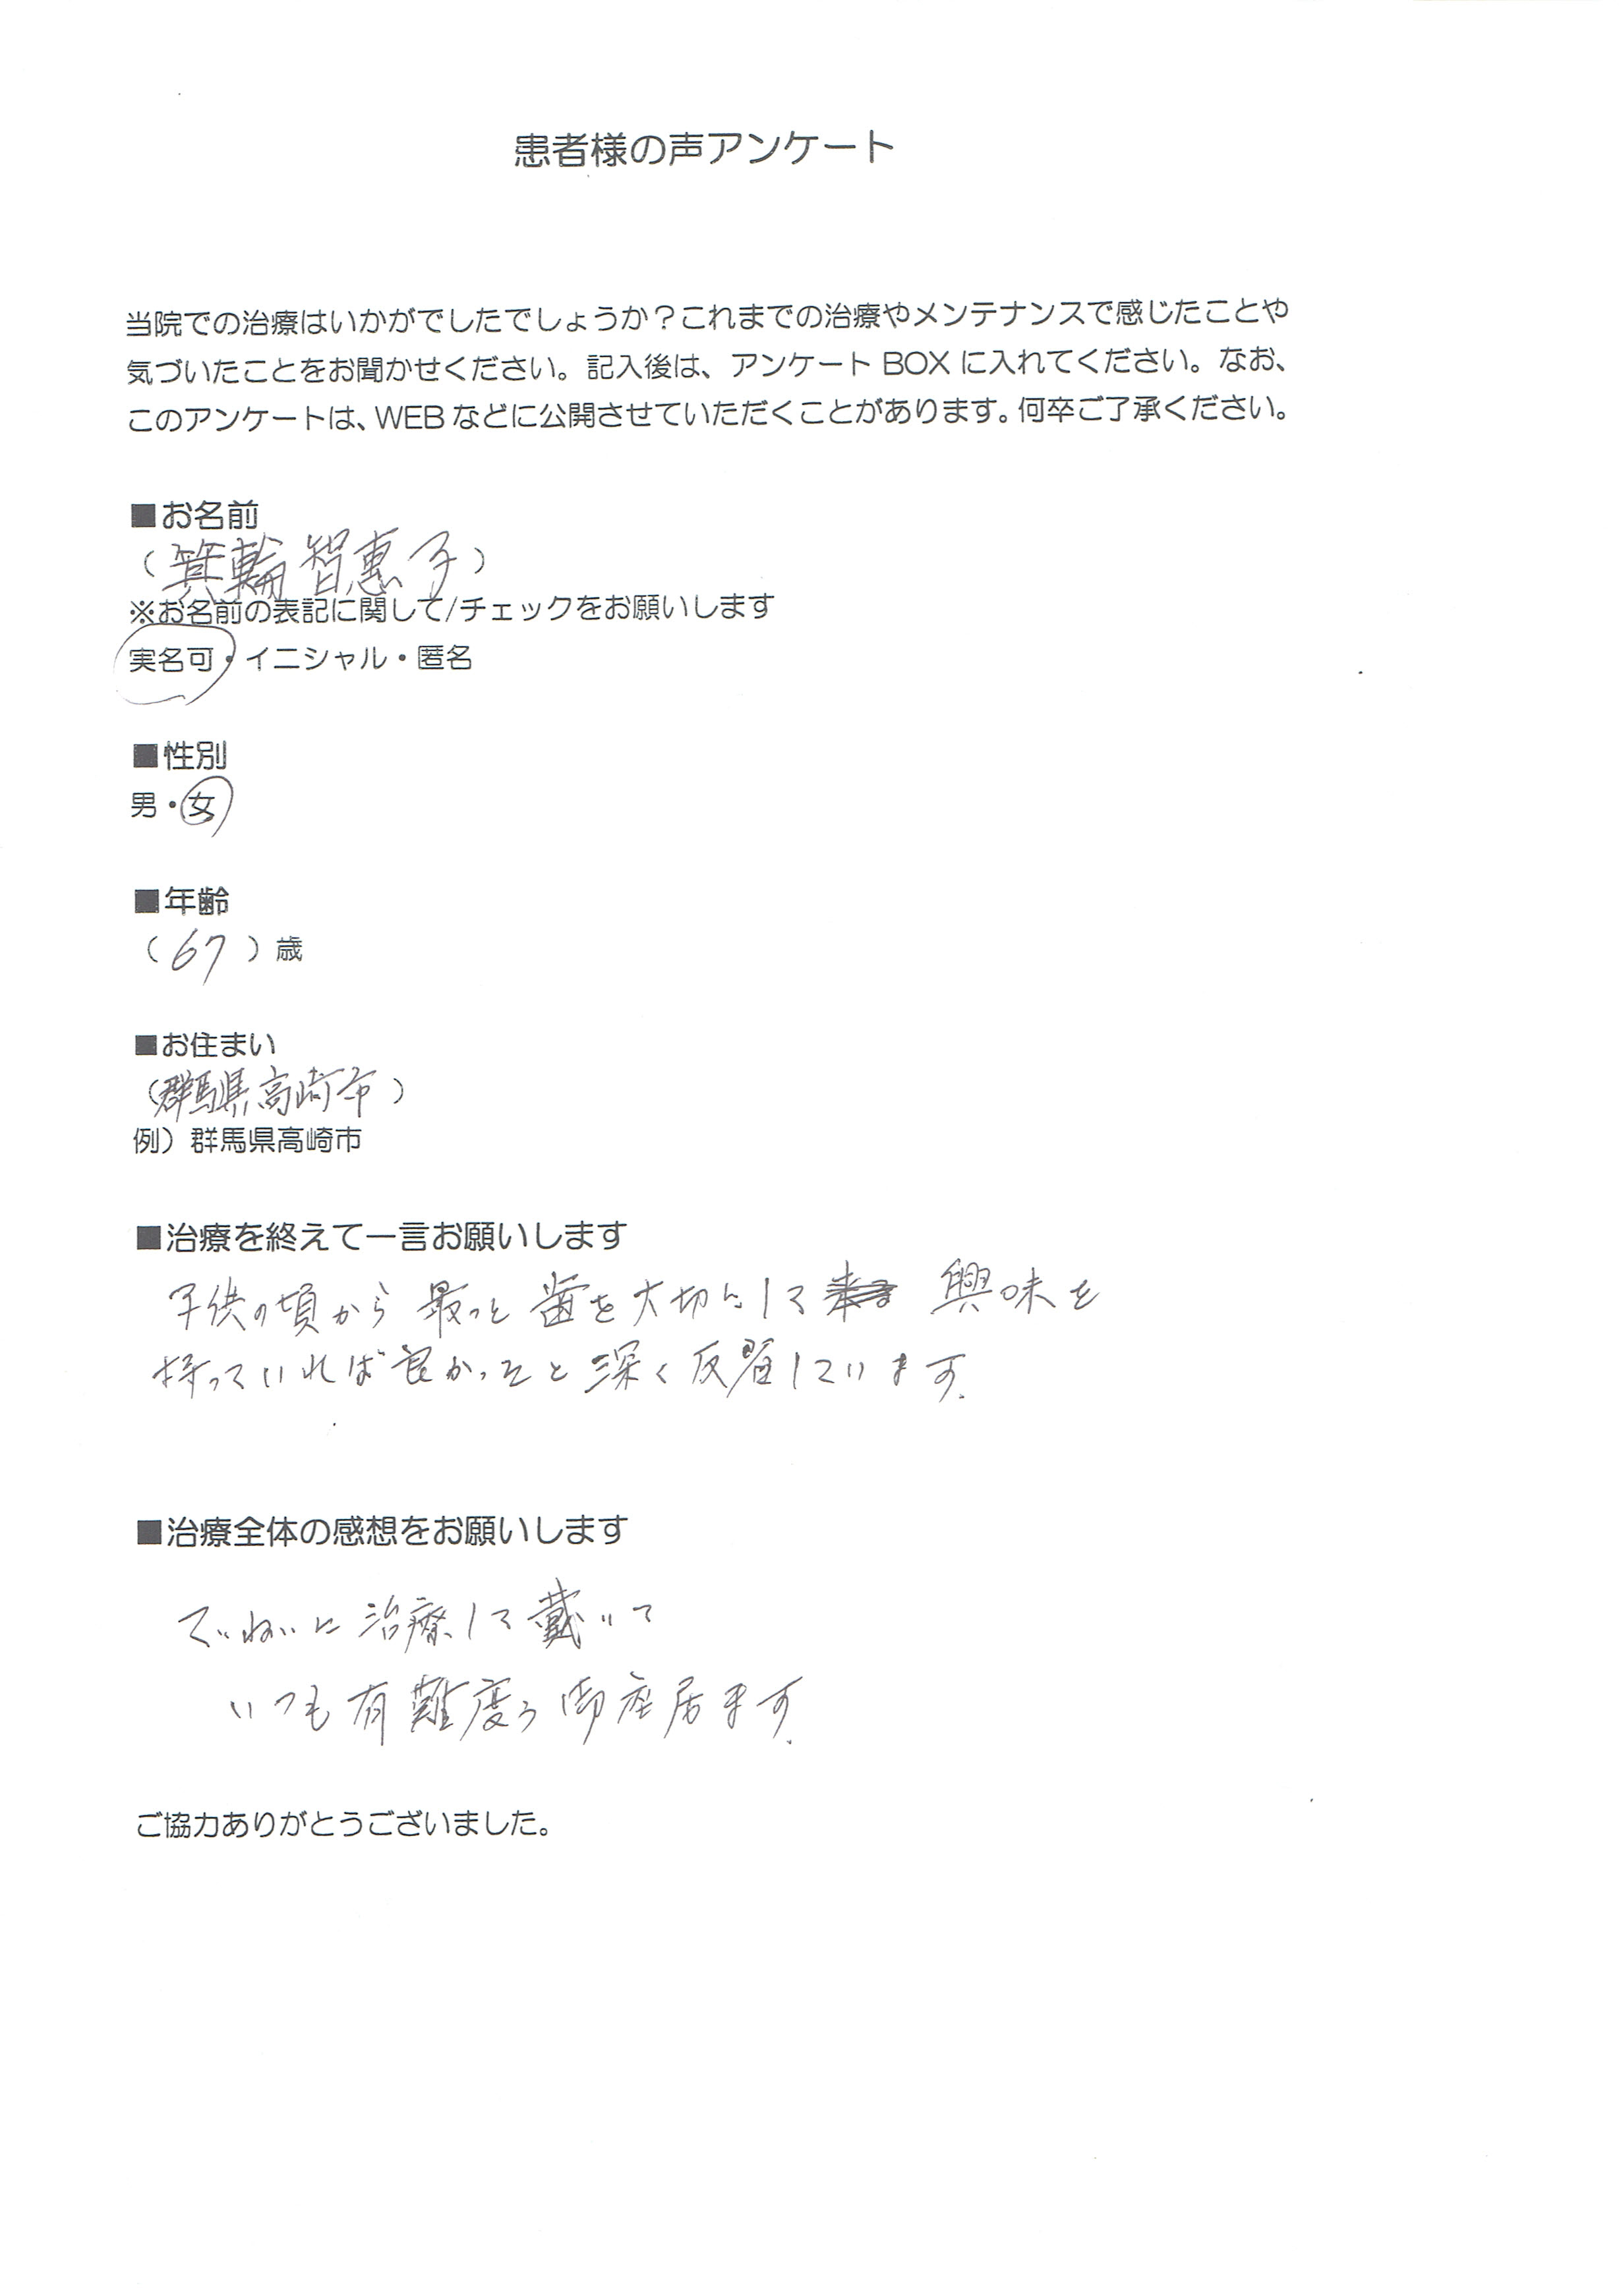 患者様の声アンケート
当院での治療はいかがでしたでしょうか？これまでの治療やメンテナンスで感じたことや
気づいたことをお聞かせください。記入後は、アンケート BOX に入れてください。なお、
このアンケートは、WEB などに公開させていただくことがあります。何卒ご了承ください。
■お名前
（箕輪智惠子）
※お名前の表記に関して/チェックをお願いします
実名可・イニシャル・匿名
■性別
男・女
■年齢
（67）歳
■お住まい
（群馬県高崎市）
例）群馬県高崎市
■治療を終えて一言お願いします
子供の頃から最っと歯を大切にして 興味を
持っていれば良かったと深く反省しています.
■治療全体の感想をお願いします
ていねいに治療して戴いて
いつも有難度う御座居ます.
ご協力ありがとうございました。